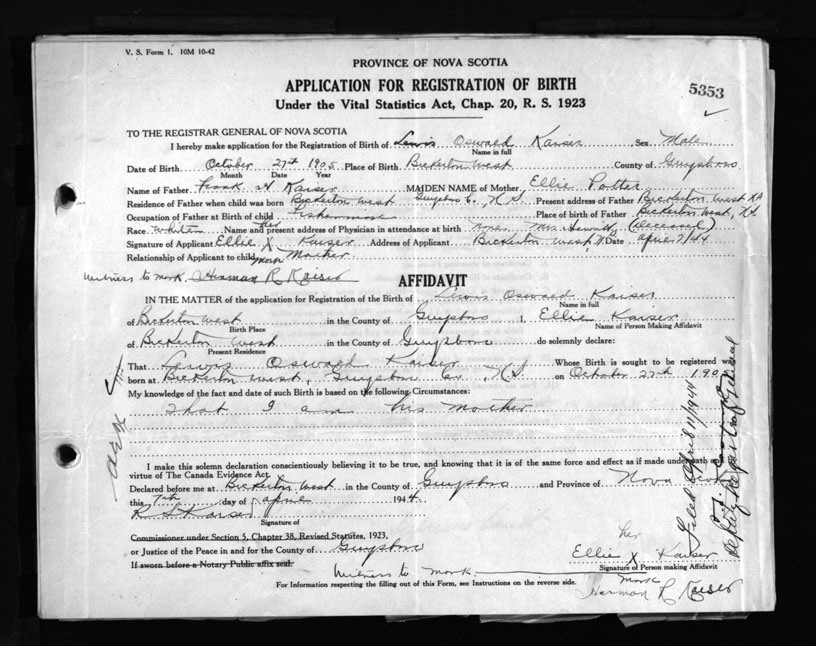 V. S. Form 1. 10M 10-42
PROVINCE OF NOVA SCOTIA
APPLICATION FOR REGISTRATION OF BIRTH
5353
Under the Vital Statistics Act, Chap. 20, R. S. 1923
TO THE REGISTRAR GENERAL OF NOVA SCOTIA
I hereby make application for the Registration of Birth of Lewis Oswald Kaiser Sex Male
Name in full
Date of Birth October 27th 1905 Place of Birth Bickerton West County of Guysboro
Month Date Year
Name of Father Frank Kaiser MAIDEN NAME of Mother Ellie Potter
Residence of Father when child was born Bickerton West Guysboro Co. N.S. Present address of Father Bickerton West
Occupation of Father at Birth of child Fisherman Place of birth of Father Bickerton West, N.S.
Race White Name and present address of Physician in attendance at birth none Mrs. (deceased)
Signature of Applicant Ellie her X mark Kaiser Address of Applicant Bickerton West Date April 7/44
Relationship of Applicant to child Mother
Witness to mark Herman R Kaiser
AFFIDAVIT
IN THE MATTER of the application for Registration of the Birth of Lewis Oswald Kaiser
Name in full
of Bickerton West in the County of Guysboro I, Ellie Kaiser
Birth Place Name of Person Making Affidavit
of Bickerton West in the County of Guysboro do solemnly declare:
Present Residence
That Lewis Oswald Kaiser Whose Birth is sought to be registered was
born at Bickerton West, Guysboro Co., N.S. on October 27th 1905
My knowledge of the fact and date of such Birth is based on the following Circumstances:
That I am his mother
I make this solemn declaration conscientiously believing it to be true, and knowing that it is of the same force and effect as if made under oath and
virtue of The Canada Evidence Act.
Declared before me at Bickerton West in the County of Guysboro and Province of Nova Scotia
this 7th day of April 1944
Kaiser
Signature of
Commissioner under Section 5, Chapter 38, Revised Statutes, 1923,
or Justice of the Peace in and for the County of Guysboro
If sworn before a Notary Public affix seal.
her
Ellie X Kaiser
Signature of Person making Affidavit
mark
Witness to mark Herman R Kaiser
For Information respecting the filling out of this Form, see Instructions on the reverse side.
Filed April 11/1944
Deputy Registrar General